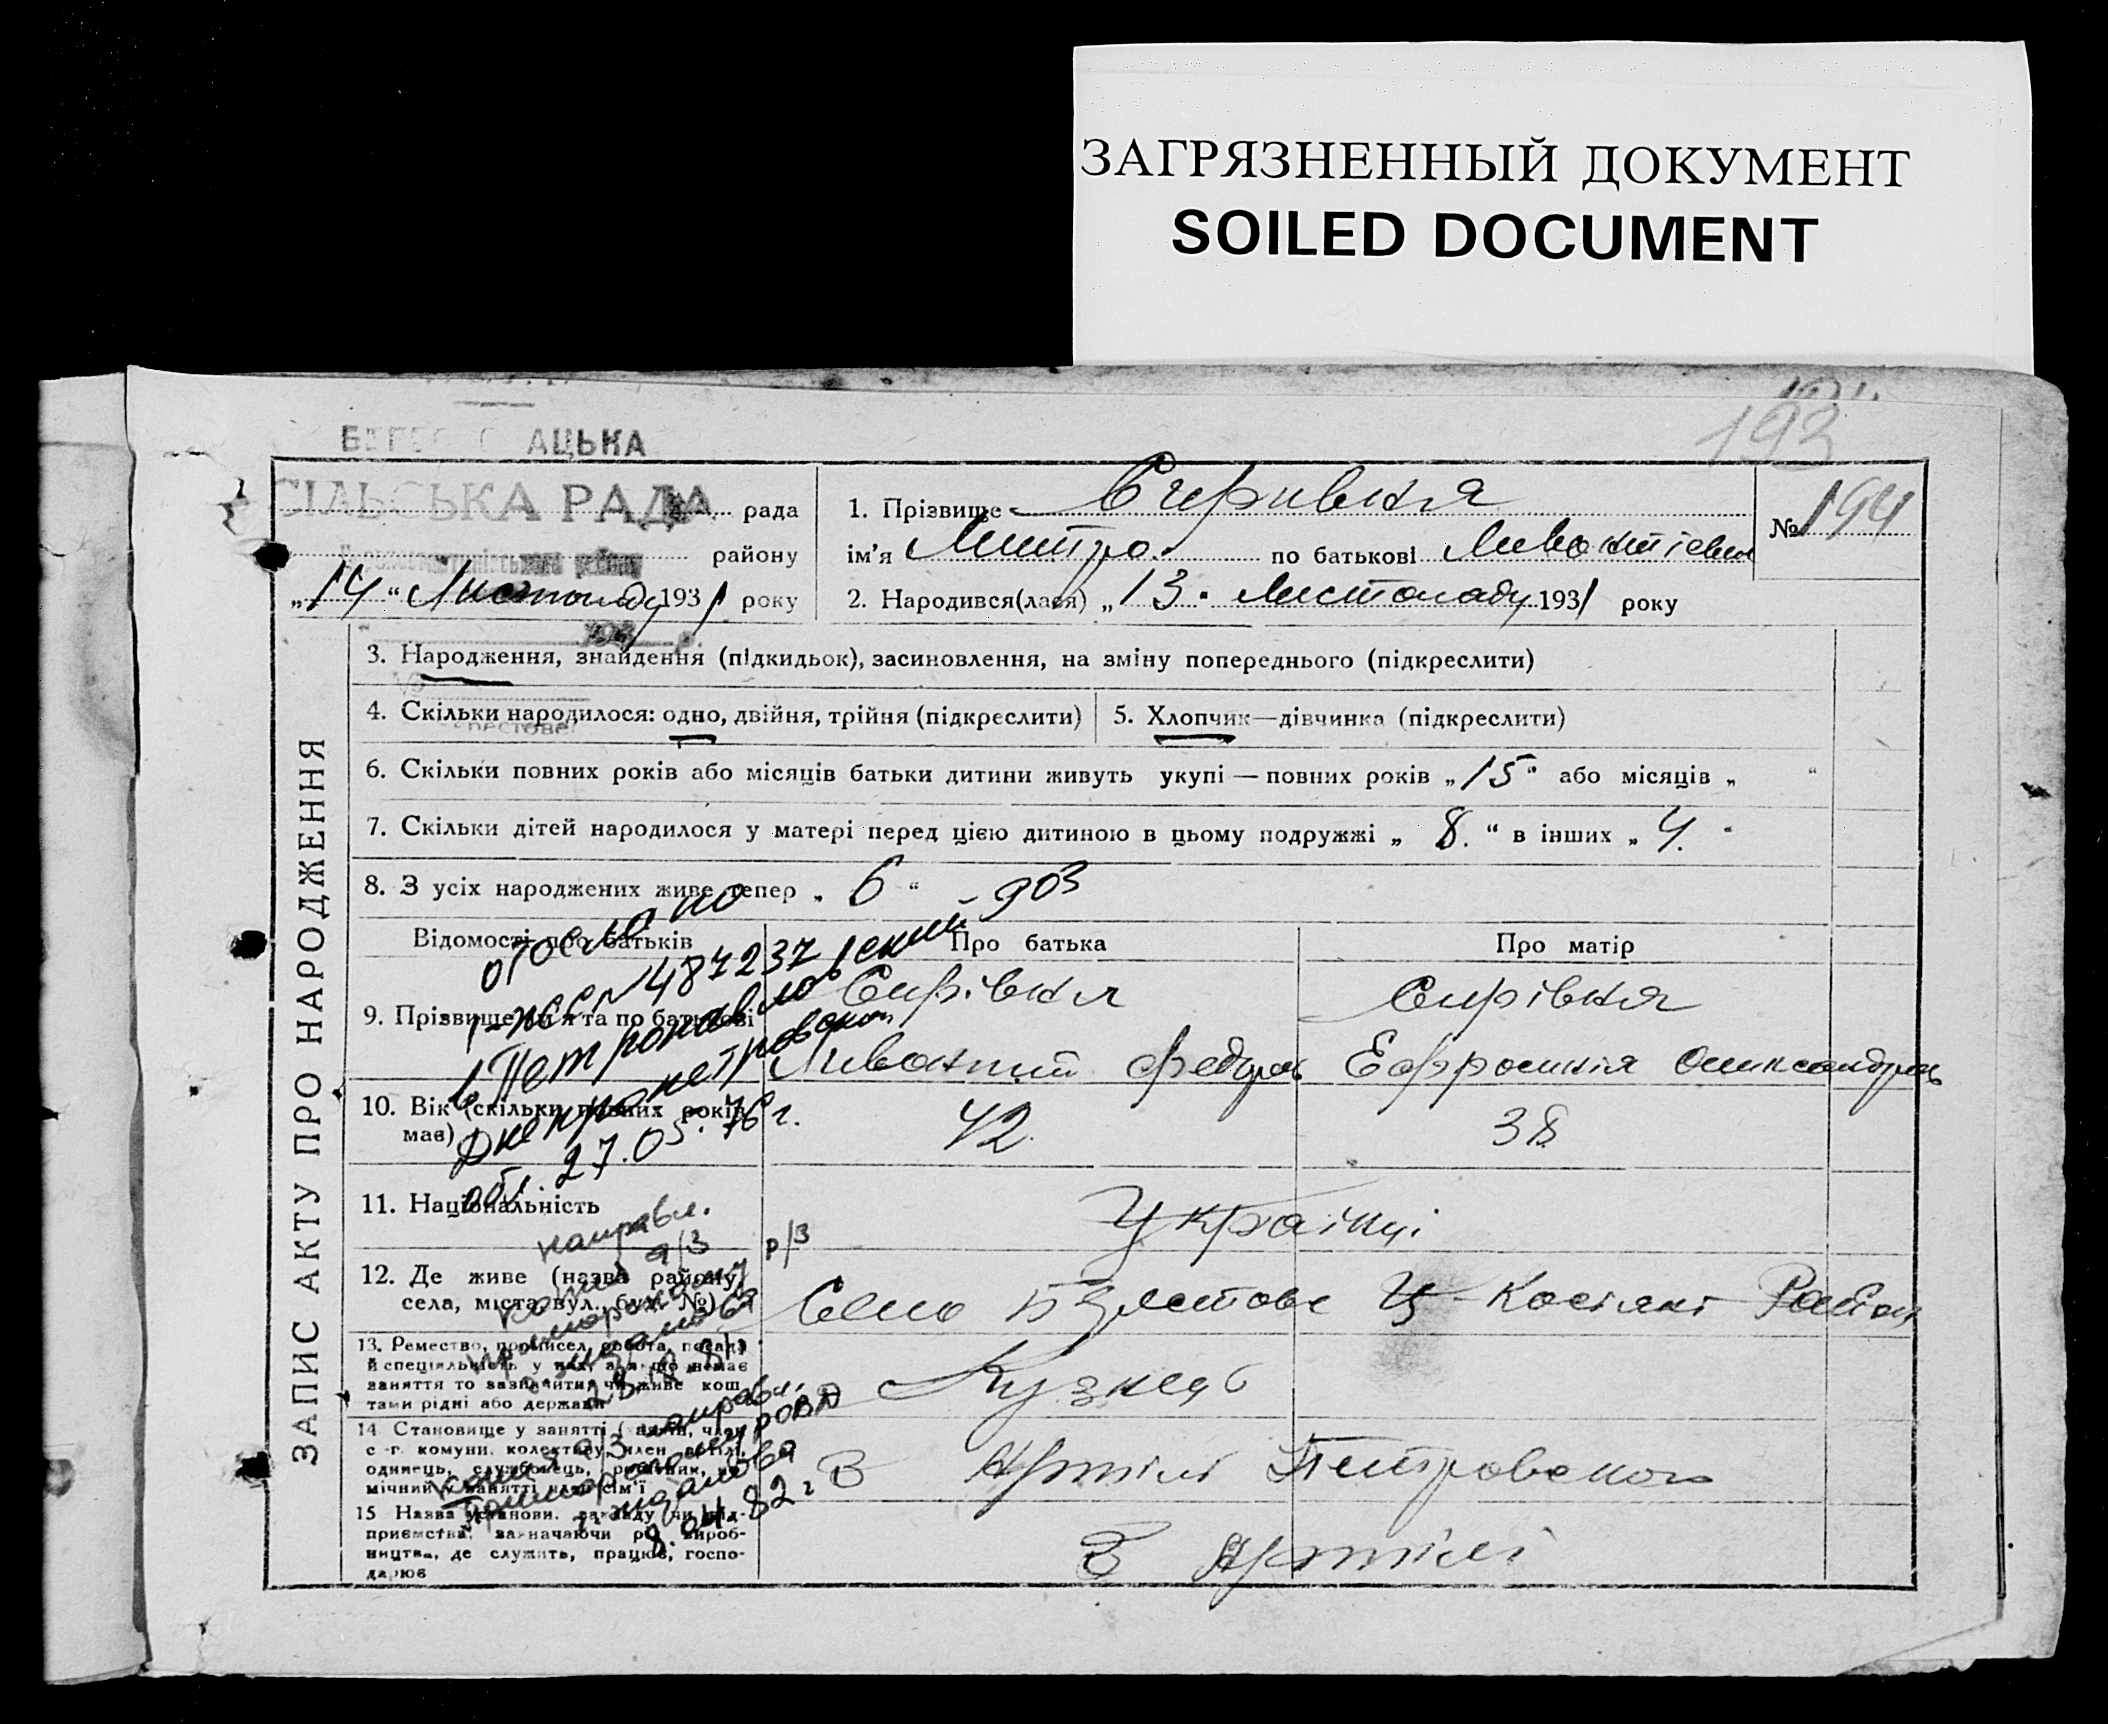 ЗАГРЯЗНЕННЫЙ ДОКУМЕНТ
SOILED DOCUMENT
193
АЦЬКА
СІЛЬСЬКА РАДА рада
району
„14“ Листопаду 1931 року
1. Прізвище Сирівкя
ім'я Митро по батькові
№ 194
2. Народився(лася) „13. Листопаду 1931 року
ЗАПИС АКТУ ПРО НАРОДЖЕННЯ
3. Народження, знайдення (підкидьок), засиновлення, на зміну попереднього (підкреслити)
4. Скільки народилося: одно, двійня, трійня (підкреслити)
5. Хлопчик—дівчинка (підкреслити)
6. Скільки повних років або місяців батьки дитини живуть укупі — повних років „15“ або місяців „ “
7. Скільки дітей народилося у матері перед цією дитиною в цьому подружжі „8.“ в інших „4.“
8. З усіх народжених живе тепер „6“
Відомості про батьків
Про батька
Про матір
9. Прізвище, ім'я та по батькові
Сирівкя
Сирівкя
Федоров
10. Вік (скільки повних років має)
42
38
11. Національність
Українці
12. Де живе (назва району, села, міста, вул., буд. №)
Село Костянт Район
13. Ремество, промисел, робота, посада
й спеціяльність у них, а якщо немає
заняття то зазначити чи живе кош
тами рідні або держави
Кузнец
14 Становище у занятті
с.-г. комуни, колективу, член артілі,
одинець, службовець,
мічний у занятті член сім'ї
В Артілі Петровского
15 Назва установи, закладу чи під-
приємства, зазначаючи рід вироб-
ництва, де служить, працює, госпо-
дарює
В Артілі
отослано
1-ЖС № 487237 - 903
в Петропавловский
Днепропетровской
обл. 27.05.76 г.
направл.
копия а/з
р/з
копия а/з направл.
Приморскому РОВД
г. Жданова
8.04 82 г